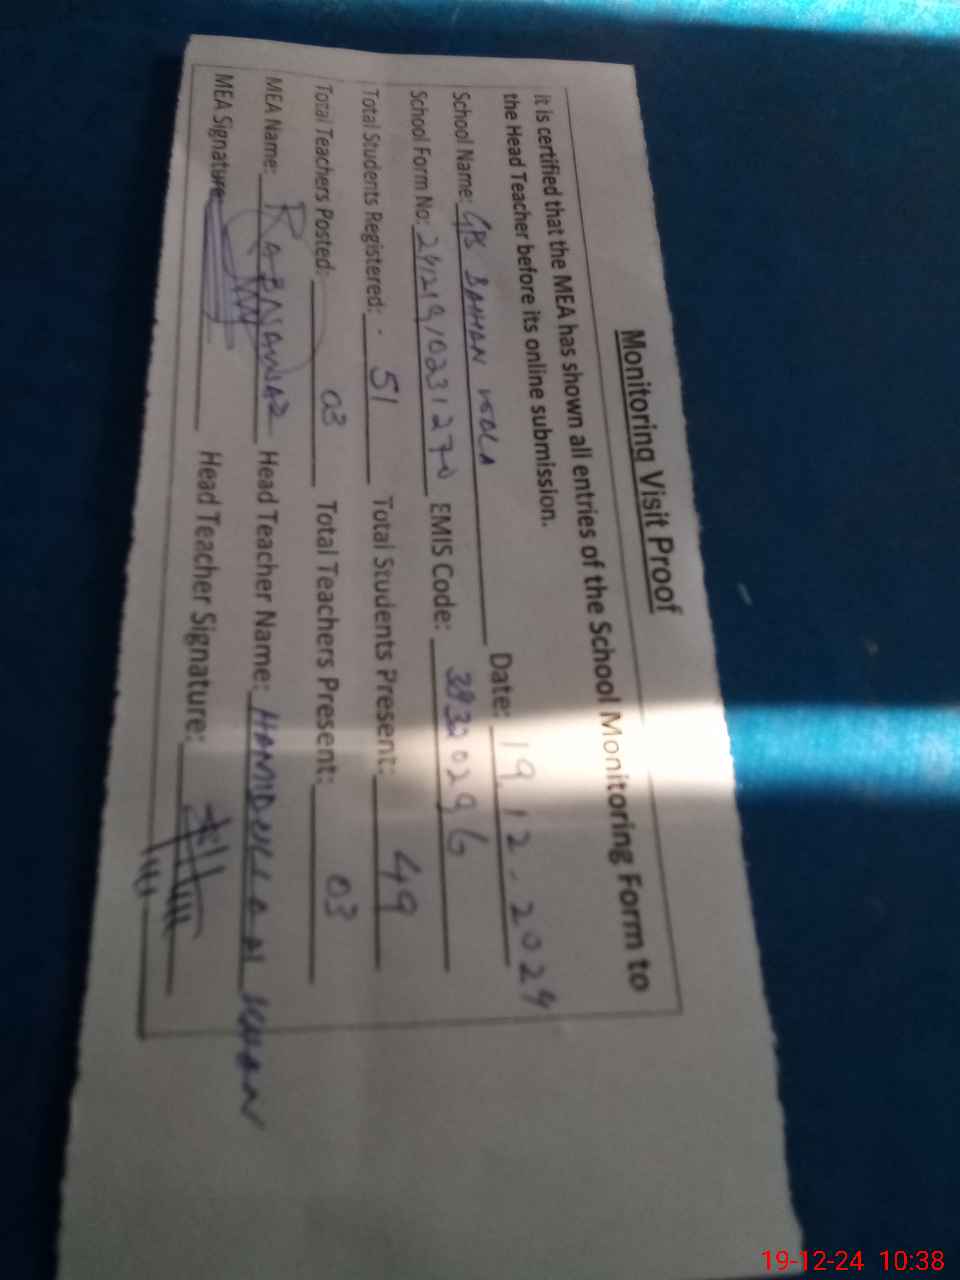 Monitoring Visit Proof
It is certified that the MEA has shown all entries of the School Monitoring Form to
the Head Teacher before its online submission.
School Name: GPS BAHHAN Date: 19.12-2024
School Form No: 24121910231270 EMIS Code:
Total Students Registered: 51 Total Students Present: 49
Total Teachers Posted: 03 Total Teachers Present: 03
MEA Name: RABNAWAZ Head Teacher Name: HAMIDULLAH KHAN
MEA Signature: Head Teacher Signature:
19-12-24 10:38